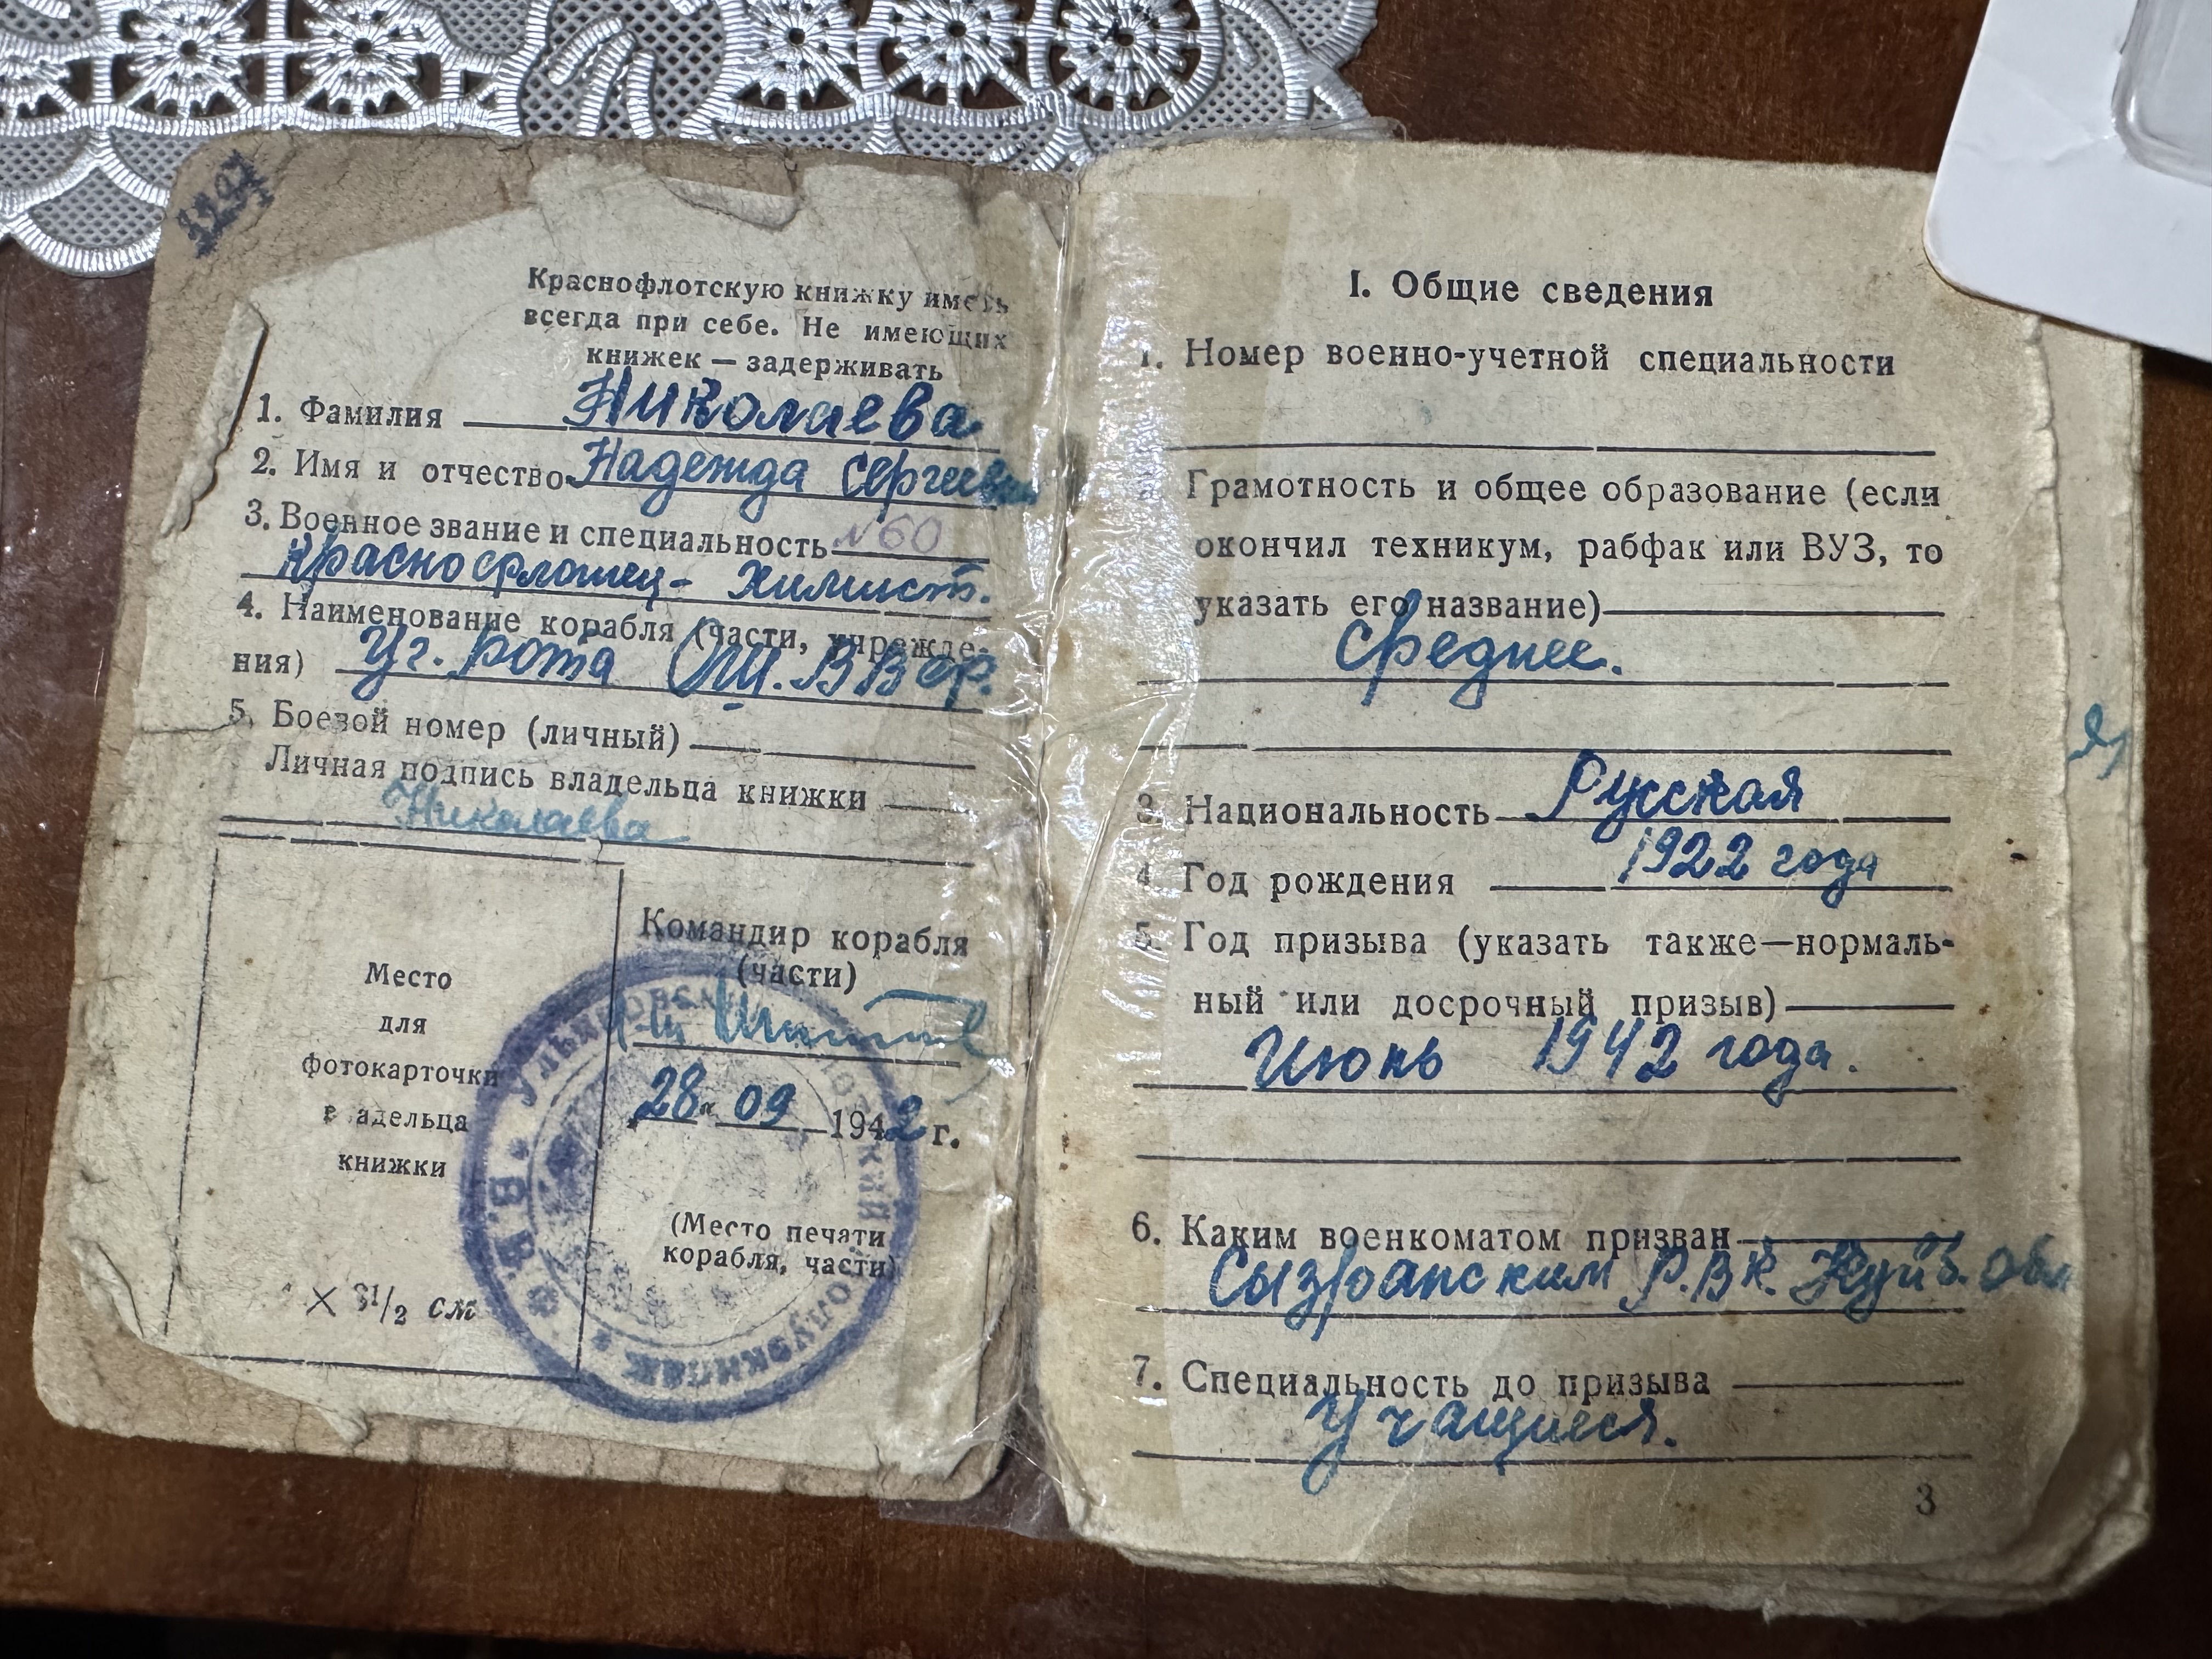 Краснофлотскую книжку иметь
всегда при себе. Не имеющих
книжек — задерживать
1. Фамилия Николаева
2. Имя и отчество Надежда Сергеевна
3. Военное звание и специальность №60
Краснофлотец - химист.
4. Наименование корабля (части, учрежде-
ния) Уч. рота
5. Боевой номер (личный)
Личная подпись владельца книжки
Николаева
Место
для
фотокарточки
в адельца
книжки
× 3 1/2 см
Командир корабля
(части)
28 " 09 1942 г.
(Место печати
корабля, части)
I. Общие сведения
1. Номер военно-учетной специальности
Грамотность и общее образование (если
окончил техникум, рабфак или ВУЗ, то
указать его название)
Среднее.
3. Национальность Русская
4. Год рождения 1922 года
5. Год призыва (указать также—нормаль-
ный или досрочный призыв)
Июнь 1942 года.
6. Каким военкоматом призван
Сызранским Р.В.К. Куйб. обл
7. Специальность до призыва
Учащиеся.
3